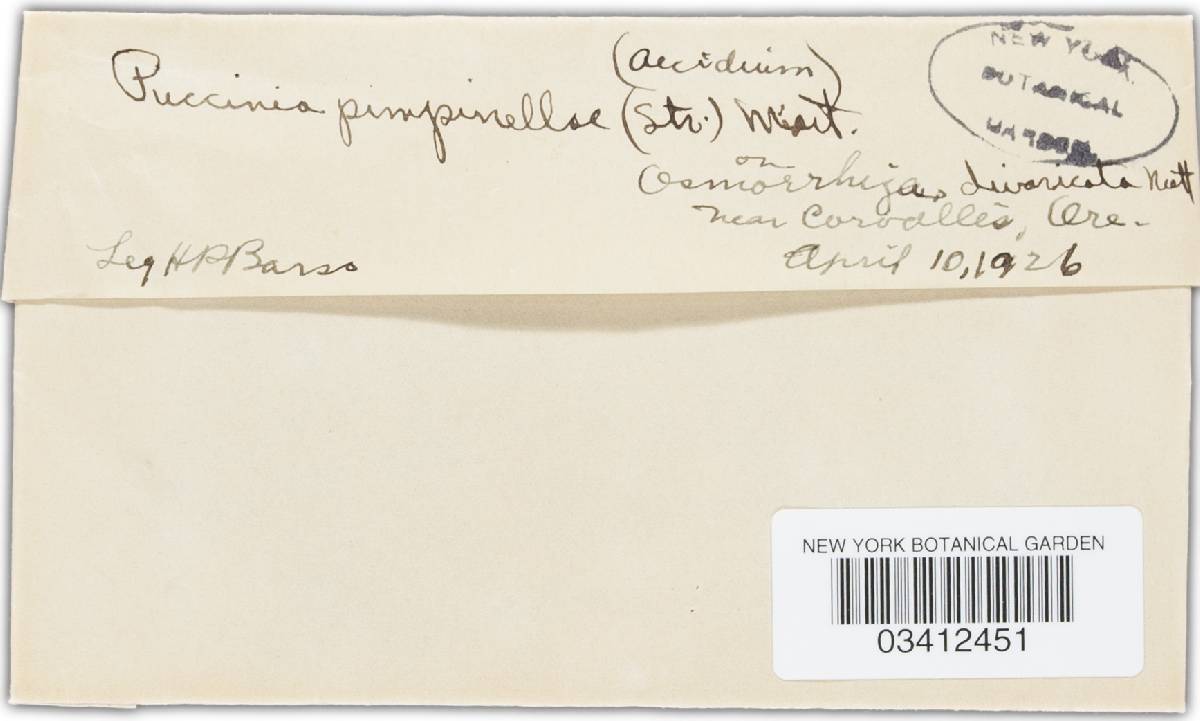 (Aecidium)
Puccinia pimpinellae (Str.) Mart.
on
Osmorrhiza divaricata Nutt
near Corvallis, Ore.
Leg H P Barss
April 10, 1926
NEW YORK
BOTANICAL
GARDEN
NEW YORK BOTANICAL GARDEN
03412451